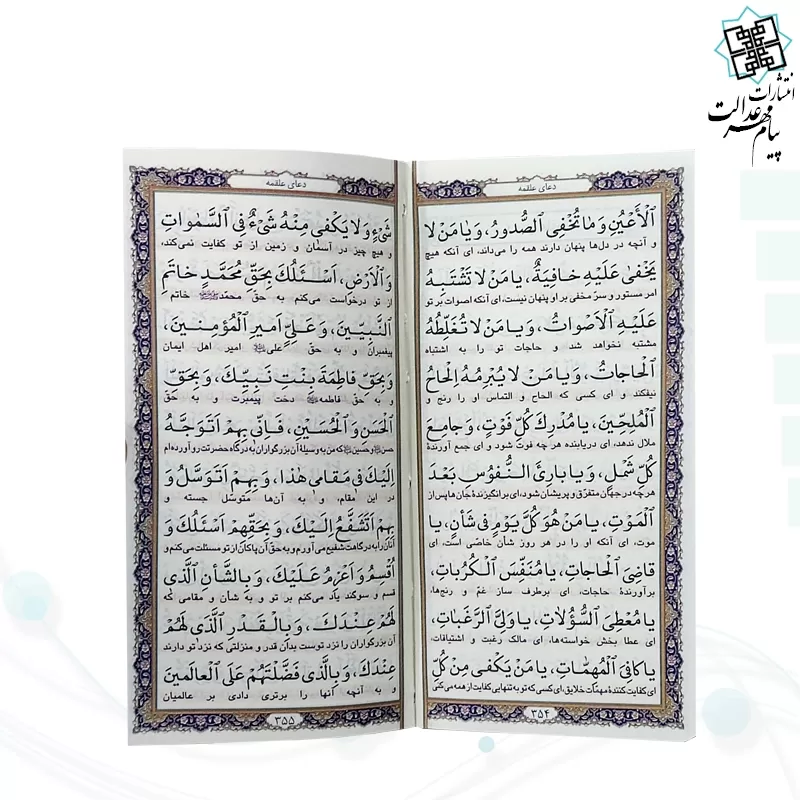 انتشارات
پیام مهر عدالت
دعای علقمه
الْأَعْيُنِ وَمَا تُخْفِى الصُّدُورُ، وَيَا مَنْ لَا
و آنچه در دل‌ها پنهان دارند همه را می‌داند، ای آنکه هیچ
يَخْفىٰ عَلَيْهِ خافِيَةٌ، يا مَنْ لا تَشْتَبِهُ
امر مستور و سرّ مخفی بر او پنهان نیست، ای آنکه اصوات بر تو
عَلَيْهِ الْاَصْواتُ، وَيا مَنْ لا تُغَلِّطُهُ
مشتبه نخواهد شد و حاجات تو را به اشتباه
الْحاجاتُ، وَيا مَنْ لا يُبْرِمُهُ اِلْحاحُ
نیفکند و ای کسی که الحاح و التماس او را رنج و
الْمُلِحّينَ، يا مُدْرِكَ كُلِّ فَوْتٍ، وَجامِعَ
ملال ندهد، ای دریابنده هر چه فوت شود و ای جمع آورندهٔ
كُلِّ شَمْلٍ، وَيا بارِئَ النُّفُوسِ بَعْدَ
هر چه در جهان متفرّق و پریشان شود، ای برانگیزندهٔ جان‌ها پس از
الْمَوْتِ، يا مَنْ هُوَ كُلَّ يَوْمٍ فى شَأْنٍ، يا
موت، ای آنکه او را در هر روز شأن خاصّی است، ای
قاضِىَ الْحاجاتِ، يا مُنَفِّسَ الْكُرُباتِ،
برآورندهٔ حاجات، ای برطرف ساز غمّ و رنج‌ها،
يا مُعْطِىَ السُّؤُلاتِ، يا وَلِىَّ الرَّغَباتِ،
ای عطا بخش خواسته‌ها، ای مالک رغبت و اشتیاقات،
يا كافِىَ الْمُهِمّاتِ، يا مَنْ يَكْفى مِنْ كُلِّ
ای کفایت کنندهٔ مهمّات خلایق، ای کسی که تو به تنهایی کفایت از همه می‌کنی
۳۵۴
دعای علقمه
شَىْءٍ وَلا يَكْفى مِنْهُ شَىْءٌ فِى السَّمٰواتِ
و هیچ چیز در آسمان و زمین از تو کفایت نمی‌کند،
وَالْاَرْضِ، اَسْئَلُكَ بِحَقِّ مُحَمَّدٍ خاتَمِ
از تو درخواست می‌کنم به حق محمد خاتم
النَّبِيّينَ، وَعَلِىٍّ اَميرِ الْمُؤْمِنينَ،
پیغمبران و به حقّ علی امیر اهل ایمان
وَبِحَقِّ فاطِمَةَ بِنْتِ نَبِيِّكَ، وَبِحَقِّ
و به حق فاطمه دخت پیمبرت و به حق
الْحَسَنِ وَالْحُسَيْنِ، فَاِنّى بِهِمْ اَتَوَجَّهُ
حسن و حسین که من به وسیلهٔ آن بزرگواران به درگاه حضرتت رو آورده‌ام
اِلَيْكَ فى مَقامى هٰذا، وَبِهِمْ اَتَوَسَّلُ وَ
در این مقام، و به آن‌ها متوسّل جسته و
بِهِمْ اَتَشَفَّعُ اِلَيْكَ، وَبِحَقِّهِمْ اَسْئَلُكَ وَ
آنان را به درگاهت شفیع می‌آورم و به حق آن پاکان از تو مسئلت می‌کنم و
اُقْسِمُ وَاَعْزِمُ عَلَيْكَ، وَبِالشَّأْنِ الَّذى
قسم و سوگند یاد می‌کنم بر تو و به شأن و مقامی که
لَهُمْ عِنْدَكَ، وَبِالْقَدْرِ الَّذى لَهُمْ
آن بزرگواران را نزد توست بدان قدر و منزلتی که نزد تو دارند
عِنْدَكَ، وَبِالَّذى فَضَّلْتَهُمْ عَلَى الْعالَمينَ
و به آنچه آنها را برتری دادی بر عالمیان
۳۵۵